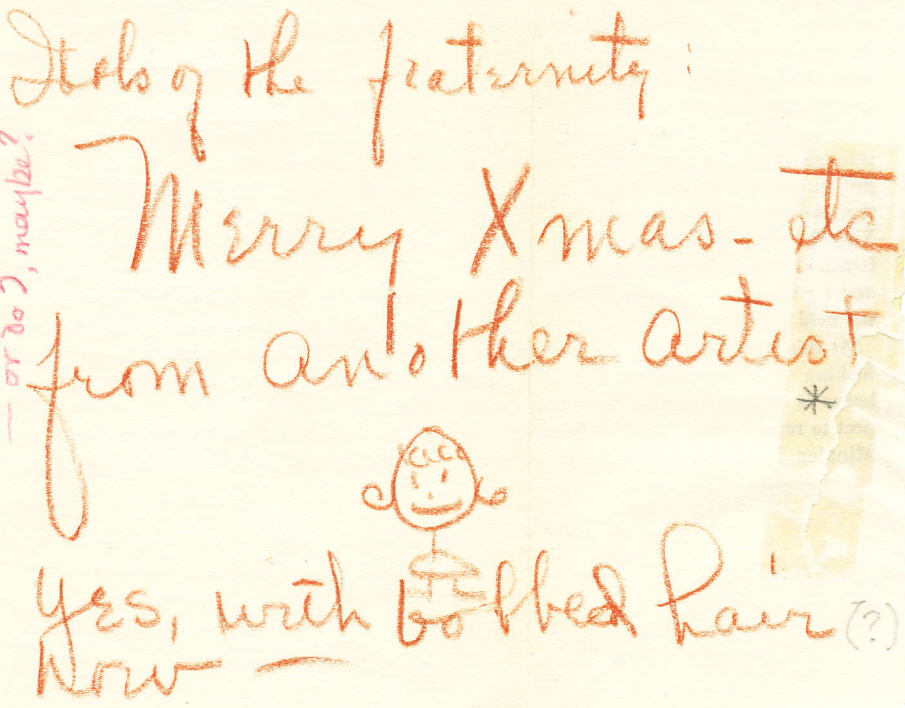 Idols of the fraternity:
Merry Xmas - etc
from another artist
*
Yes, with bobbed hair (?)
now —
— or do I, maybe?